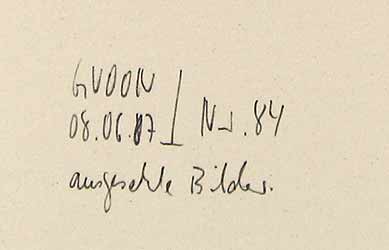 GVOON
08.06.07 Nr. 84
ausgesehte Bilder.